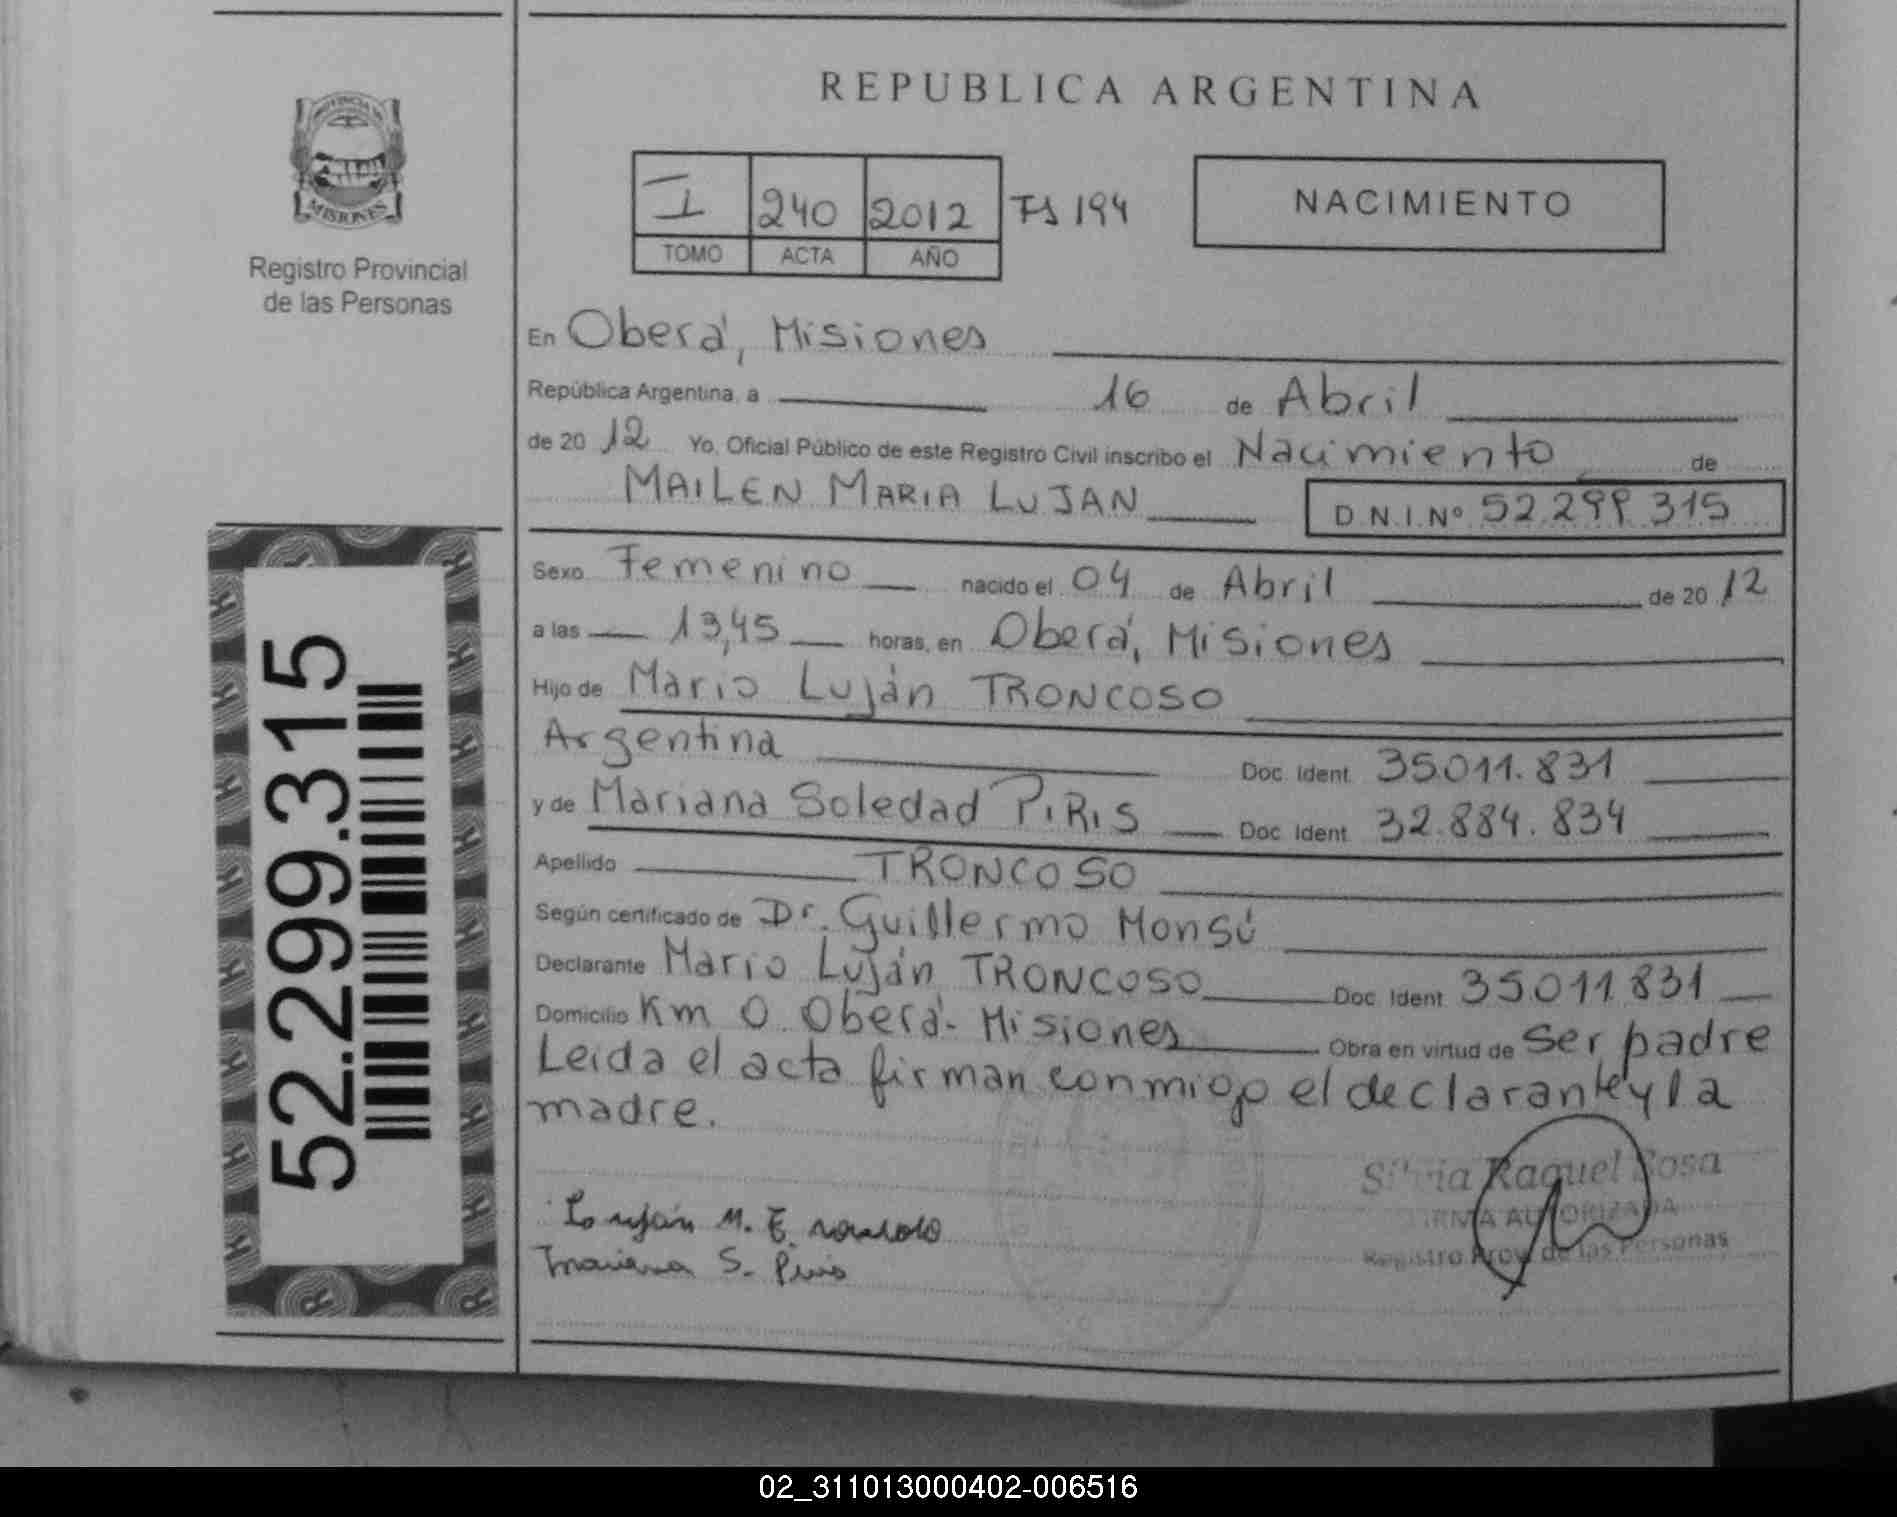 PROVINCIA DE
MISIONES
Registro Provincial
de las Personas
REPUBLICA ARGENTINA
I 240 2012 Fs 194
TOMO ACTA AÑO
NACIMIENTO
En Oberá, Misiones
República Argentina, a 16 de Abril
de 20 12 Yo, Oficial Público de este Registro Civil inscribo el Nacimiento de
MAILEN MARIA LUJAN D.N.I. Nº 52.299.315
Sexo Femenino nacido el 04 de Abril de 20 12
a las 13,45 horas, en Oberá, Misiones
Hijo de Mario Luján TRONCOSO
Argentina Doc. Ident. 35.011.831
y de Mariana Soledad PIRIS Doc. Ident. 32.884.834
Apellido TRONCOSO
Según certificado de Dr. Guillermo Monsú
Declarante Mario Luján TRONCOSO Doc. Ident. 35011831
Domicilio Km 0 Oberá- Misiones Obra en virtud de ser padre
Leida el acta firman conmigo el declarante y la
madre.
52.299.315
Silvia Raquel Sosa
FIRMA AUTORIZADA
Registro Prov. de las Personas
Luján M.
Mariana S. Piris
02_311013000402-006516